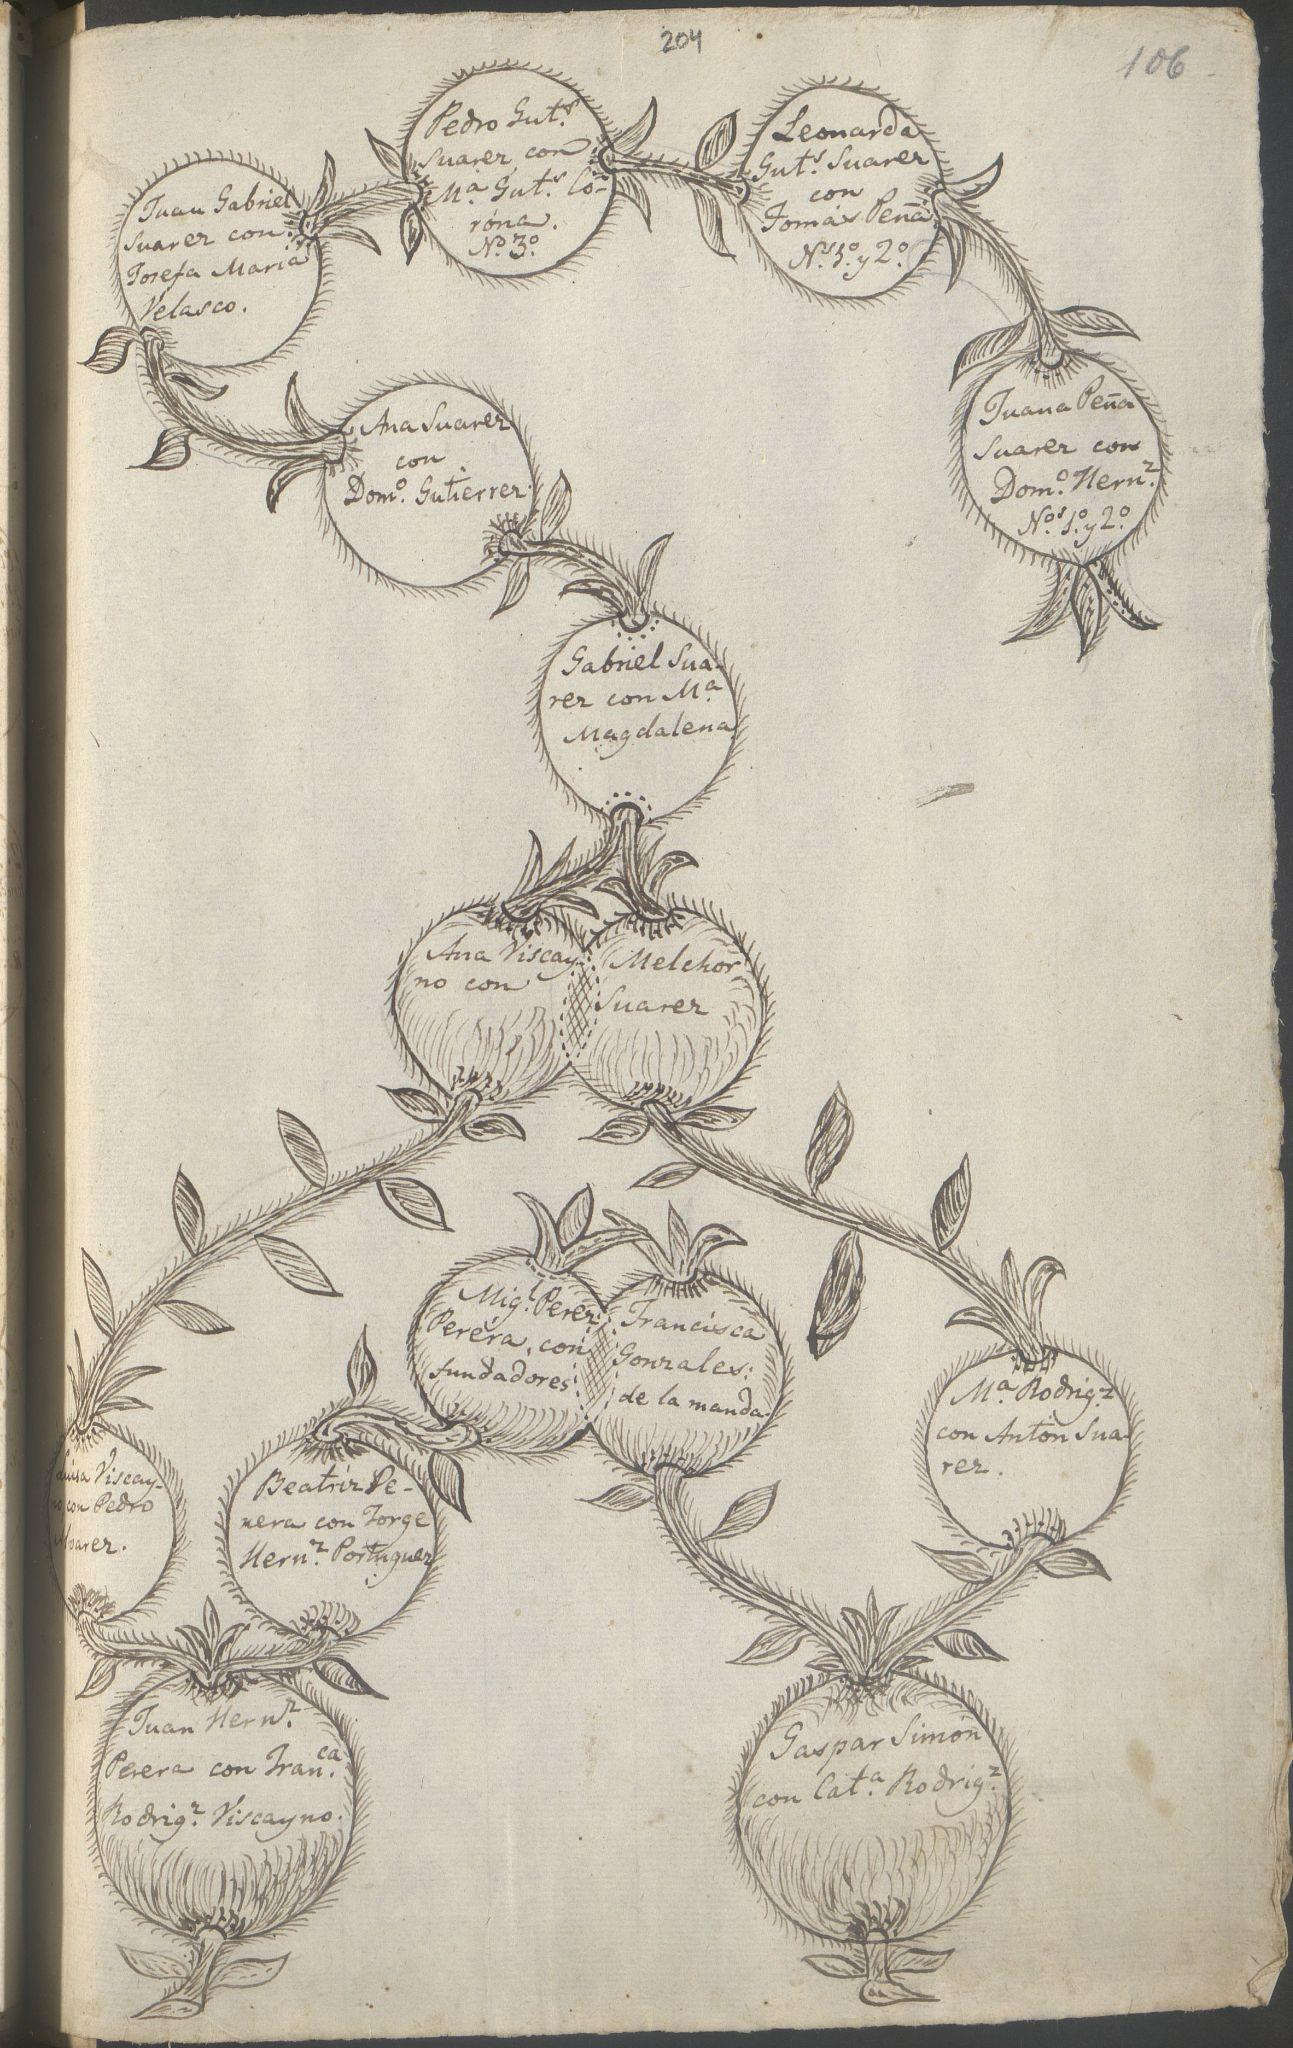 204
106
Pedro Gut.s
Suarez con
M.a Gut.s Co-
róna.
N.o 3.o
Leonarda
Gut.s Suarez
con
Tomás Peña
N.s 1.o y 2.o
Juan Gabriel
Suarez con
Josefa María
Velasco.
Ana Suarez
con
Dom.o Gutierrez.
Juana Peña
Suarez con
Dom.o Hern.z
N.os 1.o y 2.o
Gabriel Sua-
rez con M.a
Magdalena
Ana Viscay-
no con
Melchór
Suarez
Mig.l Perez
Peréra, con
fundadores
Francisca
Gonzales:
de la manda.
M.a Rodrig.z
con Antón Sua-
rez.
Luisa Viscay-
no con Pedro
Beatríz Pe-
rera con Jorge
Hern.z Portuguez
Juan Hern.z
Perera con Fran.ca
Rodrig.z Viscayno.
Gaspar Simón
con Cat.a Rodrig.z